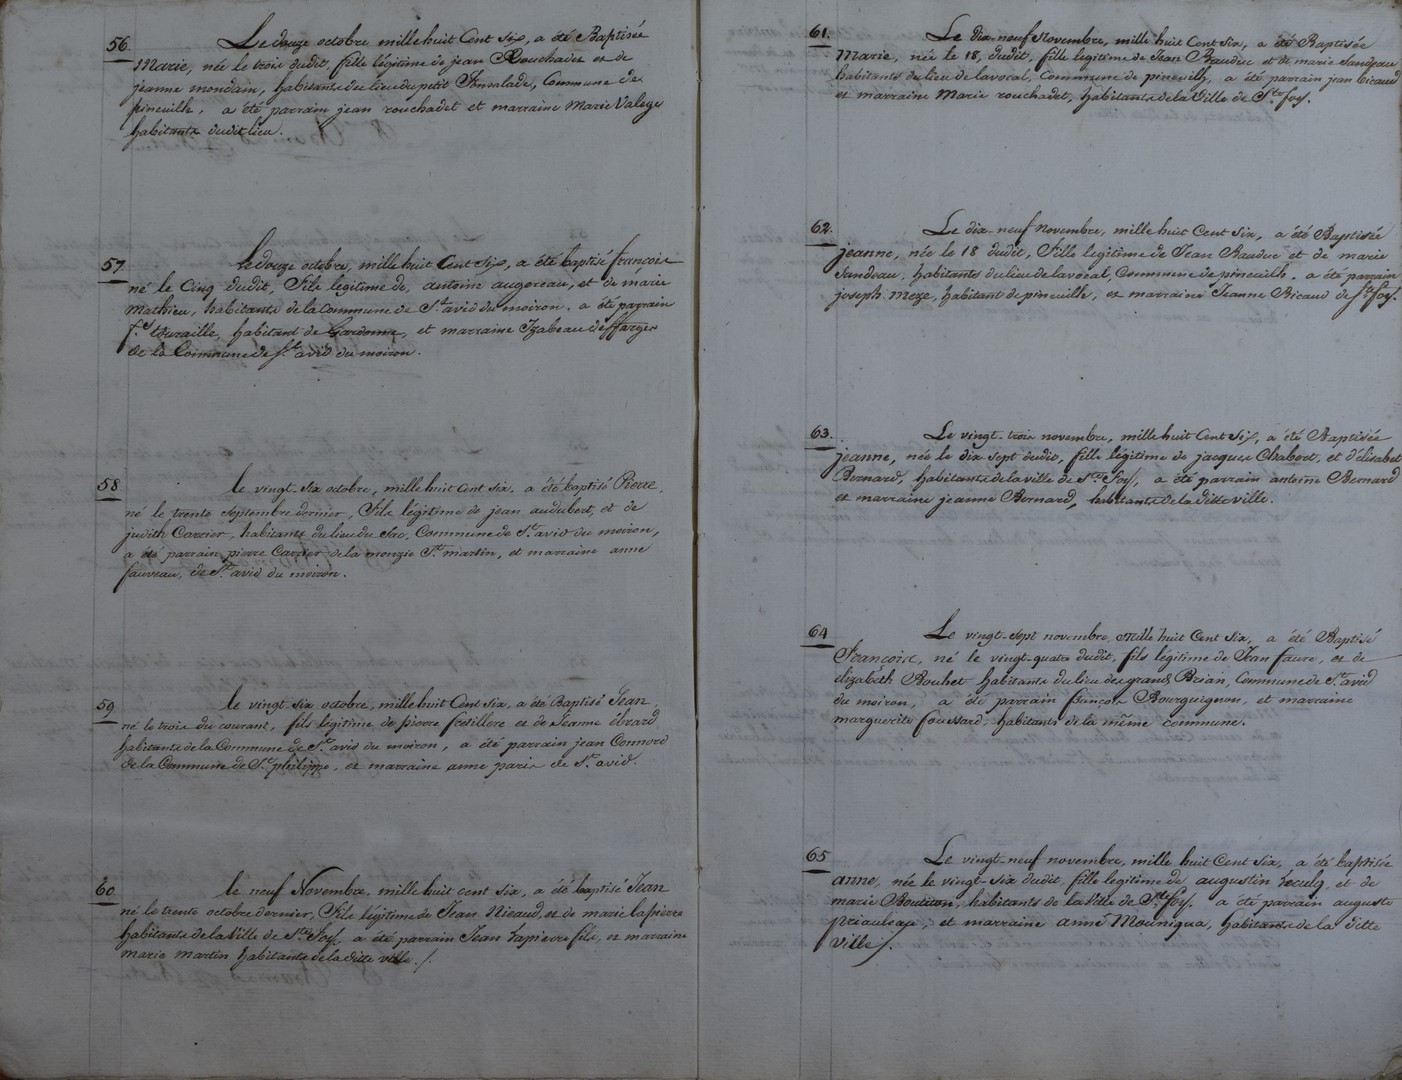 56.
Le douze octobre mille huit Cent Six, a été Baptisée
Marie, née le trois dudit, fille légitime de jean Rouchadet et de
jeanne mondain, habitants du lieu du petit Commune de
pineuilh, a été parrain jean rouchadet et marraine Marie Valege
habitants dudit lieu.
57.
le douze octobre, mille huit Cent Six, a été baptisé françois
né le Cinq dudit, fils légitime de, antoine augereau, et de marie
Mathieu, habitants de la commune de St. avid du moiron. a été parrain
f.s touraille, habitant de Gardonne, et marraine Izabeau deffarges
de la Commune de St. avid du moiron.
58
le vingt-six octobre, mille huit Cent six, a été baptisé Pierre,
né le trente Septembre dernier, fils légitime de jean audubert, et de
judith Carrier, habitants du lieu du Sac, Commune de St. avid du moiron,
a été parrain pierre Carrier de la monzie St. martin, et marraine anne
fauveau, de St. avid du moiron.
59
le vingt six octobre, mille huit Cent six, a été Baptisé Jean,
né le trois du courant, fils légitime de pierre frétillère et de Jeanne ébrard
habitants de la Commune de St. avid du moiron, a été parrain jean Connord
de la Commune de St. philippe, et marraine anne paris de St. avid.
60
le neuf Novembre, mille huit cent six, a été baptisé Jean
né le trente octobre dernier, fils légitime de Jean Ricaud, et de marie lapierre
habitants de la Ville de Ste. Foy, a été parrain Jean Lapierre fils, et marraine
marie martin habitants de la ditte ville ./.
61.
Le dix-neuf Novembre, mille huit Cent Six, a été Baptisée
Marie, née le 18, dudit, fille légitime de Jean Rauduc et de marie Sandeau
habitants du lieu de lavocal, Commune de pineuilh, a été parrain jean ricaud
et marraine Marie rouchadet, habitants de la Ville de Ste. foy.
62.
Le dix-neuf Novembre, mille huit Cent Six, a été Baptisée
jeanne, née le 18 dudit, fille légitime de Jean Rauduc et de marie
Sandeau, habitants du lieu de lavocal, Commune de pineuilh. a été parrain
joseph meze, habitant de pineuilh, et marraine Jeanne Ricaud de Ste. foy.
63.
Le vingt-trois novembre, mille huit Cent Six, a été Baptisée
jeanne, née le dix-sept dudit, fille légitime de jacques Chabort, et d'élisabet
Bernard, habitants de la ville de Ste. Foy, a été parrain antoine Bernard
et marraine jeanne Bernard, habitants de la ditte ville.
64
Le vingt-sept novembre, mille huit Cent Six, a été Baptisé
François, né le vingt-quatre dudit, fils légitime de Jean faure, et de
elizabeth Bouhet habitants du lieu des grands Brian, Commune de St. avid
du moiron, a été parrain françois Bourguignon, et marraine
marguerite foussard, habitants de la même commune.
65
Le vingt-neuf novembre, mille huit Cent Six, a été baptisée
anne, née le vingt-six dudit, fille légitime de augustin et de
marie Boutiton, habitants de la Ville de Ste. foy. a été parrain auguste
et marraine anne habitants de la ditte
Ville ./.